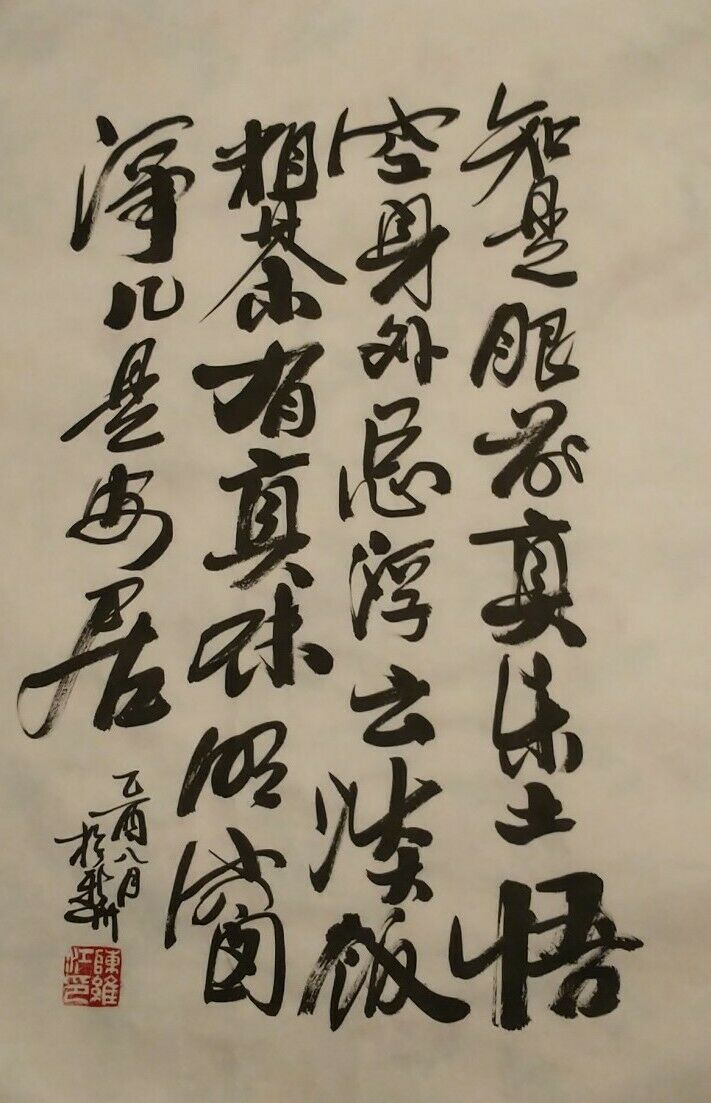 知足眼前真乐土悟
空身外总浮云淡饭
粗茶有真味明窗
净几是安居
乙酉八月
於
陳維江印